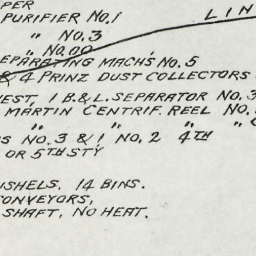 PER
PURIFIER NO. 1 LIN
" NO. 3
" NO. 00
EPARATING MACH'S NO. 5
& 4 PRINZ DUST COLLECTORS
EST, 1 B. & L. SEPARATOR NO. 3
MARTIN CENTRIF. REEL NO.
" " " "
S NO. 3 & 1 NO. 2 4TH
OR 5TH STY
SHELS. 14 BINS.
ONVEYORS,
SHAFT, NO HEAT.